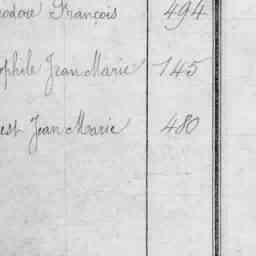 odore François 494
ophile Jean Marie 145
est Jean Marie 480